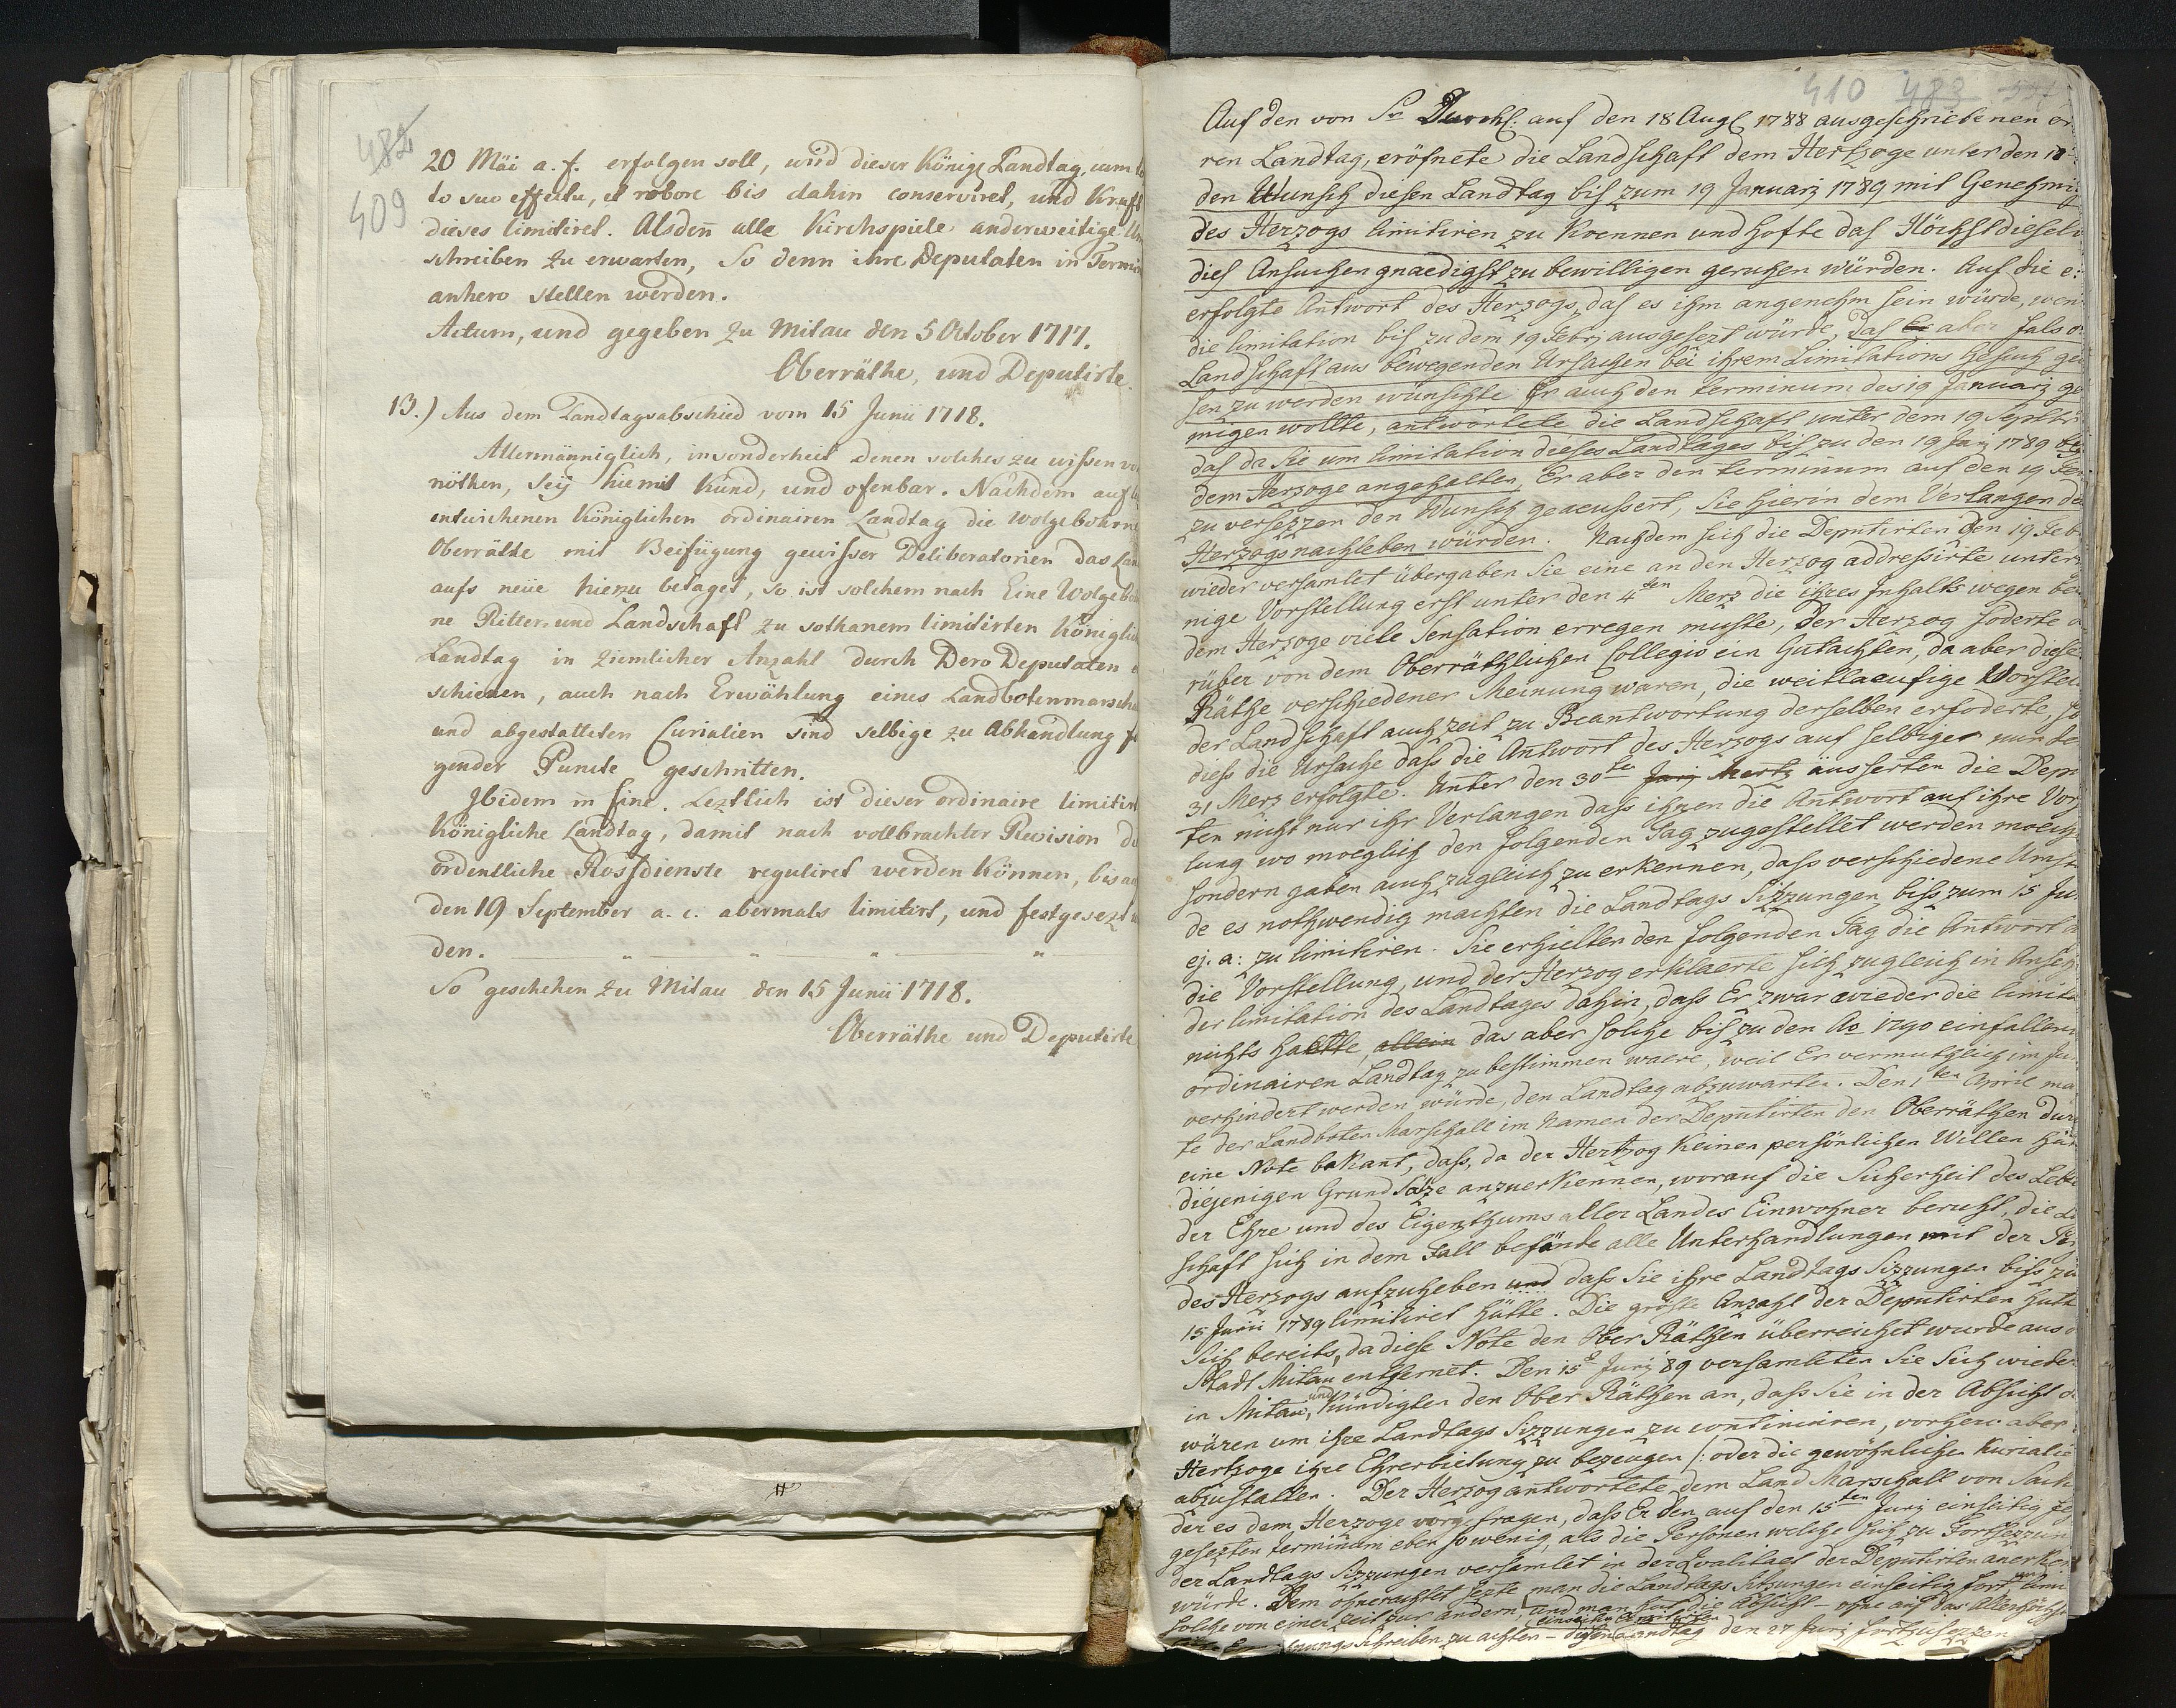 482
409
20 Mäi a. f. erfolgen soll, wird dieser Königl Landtag, cum
to suo effectu, et robore bis dahin conserviret, und Kraft
dieses limitiret. Alsdeñ alle Kirchspiele anderweitige
schreiben zu erwarten, So denn ihre Deputaten in
anhero stellen werden.
Actum, und gegeben zu Mitau den 5 October 1717.
Oberräthe, und Deputirte.
13.) Aus dem Landtagsabschied vom 15 Junii 1718.
Allermänniglich, insonderheit denen solches zu wissen
nöthen, Seÿ hiemit Kund, und ofenbar. Nachdem auf
entwichenen Königlichen ordinairen Landtag die Wolgebohrne
Oberräthe mit Beifügung gewisser Deliberatorien das
aufs neüe hiezu betaget, so ist solchem nach Eine
ne Ritter und Landschaft zu sothanem limitirten
Landtag in ziemlicher Anzahl durch Dero Deputaten
schienen, auch nach Erwählung eines
und abgestatteten Curialien sind selbige zu Abhandlung
gender Puncte geschritten.
Ibidem in fine. Leztlich ist dieser ordinaire
Königliche Landtag, damit nach vollbrachter Revision
ordentliche Rossdienste reguliret werden Können, bis
den 19 September a. c. abermals limitirt, und festgesezt
den.
So geschehen zu Mitau den 15 Junii 1718.
Oberräthe und Deputirte
410 483
Auf den von Sr Durchl. auf den 18 Augl 1788 ausgeschriebenen
ren Landtag, eröfnete die Landschaft dem Hertzoge unter den
den Wunsch diesen Landtag bis zum 19 Januarj 1789 mit
des Herzogs limitiren zu Koennen und hofte das
dies Ansuchen gnaedigst zu bewilligen geruhen würden. Auf die
erfolgte Antwort des Herzogs, das es ihm angenehm sein würde,
die limitation bis zu dem 19 Febrj ausgesezt würde, das Er aber fals
Landschaft aus bewegenden Ursachen bei ihrem Limitations Gesuch
sen zu werden wünschte Er auch den terminum des 19 Januarj
migen wollte, antwortete die Landschaft unter dem 19
das da Sie um limitation dieses Landtages bis zu den 19 Jan 1789
dem Herzoge angehalten, Er aber den terminum auf den 19
zu versezzen den Wunsch geaeussert, Sie hierin dem Verlangen
Herzogs nachleben würden. Nachdem sich die Deputirten den 19
wieder versamlet übergaben Sie eine an den Herzog addressirte
nige Vorstellung erst unter den 4ten Merz die ihres Inhalts wegen
dem Herzoge viele Sensation erregen muste, der Herzog foderte
rüber von dem Oberräthlichen Collegio ein Gutachten, da aber
Räthe verschiedener Meinung waren, die weitlaeufige
der Landschaft auch zeit zu Beantwortung derselben erfoderte,
diess die Ursache dass die Antwort des Herzogs auf selbiger
31 Merz erfolgte. Unter den 30ten Junj Mertz äusserten die
ten nicht nur ihr Verlangen dass ihnen die Antwort auf ihre
lung wo moeglich den folgenden Tag zugestellet werden
sondern gaben auch zugleich zu erkennen, dass verschiedene
de es nothwendig machten die Landtags Sizzungen biss zum 15
ej. a: zu limitiren. Sie erhielten den folgenden Tag die Antwort
die Vorstellung, und der Herzog erklaerte sich zugleich in
der limitation des Landtages dahin, dass Er zwar wieder die
nichts haette, allein das aber solche bis zu den Ao 1790
ordinairen Landtag zu bestimmen waere, weil Er vermuthlich im
verhindert werden würde, den Landtag abzuwarten. Den 1ten April
te der Landboten Marschall im Namen der Deputirten den Oberräthen
eine Note bekant, dass, da der Hertzog Keinen persönlichen Willen
diejenigen Grund Sätze anzuerkennen, worauf die Sicherheit des
der Ehre und des Eigenthums aller Landes Einwohner beruht, die
schaft sich in dem Fall befände alle Unterhandlungen mit der
des Herzogs aufzuheben und dass Sie ihre Landtags Sizzungen biss
15 Junii 1789 limitiret hätte. Die gröste Anzahl der Deputirten
sich bereits, da diese Note den Ober Räthen überreichet wurde aus
Stadt Mitau entfernet. Den 15t Junj 89 versamleten Sie Sich wieder
in Mitau, und Kündigten den Ober Räthen an, dass Sie in der Absicht
wären um ihre Landtags Sizzungen zu continuiren, vorhero aber
Hertzoge ihre Ehrerbietung zu bezeugen /: oder die gewöhnlichen
abzustatten. Der Herzog antwortete dem Land Marschall von
der es dem Herzoge vorgetragen, dass Er den auf den 15ten Junj einseitig
gesezten terminum eben so wenig, als die Personen welche sich zu
der Landtags Sizzungen versamlet in der Qvalitaet der Deputirten
würde. Dem ohnerachtet sezte man die Landtags Sitzungen einseitig fort, und
solche von einer Zeit zur andern, und man hat die Absicht - ohne auf das
Schreiben zu achten - diesen einseitig limitirten Landtag den 27 Junj fortzusezzen